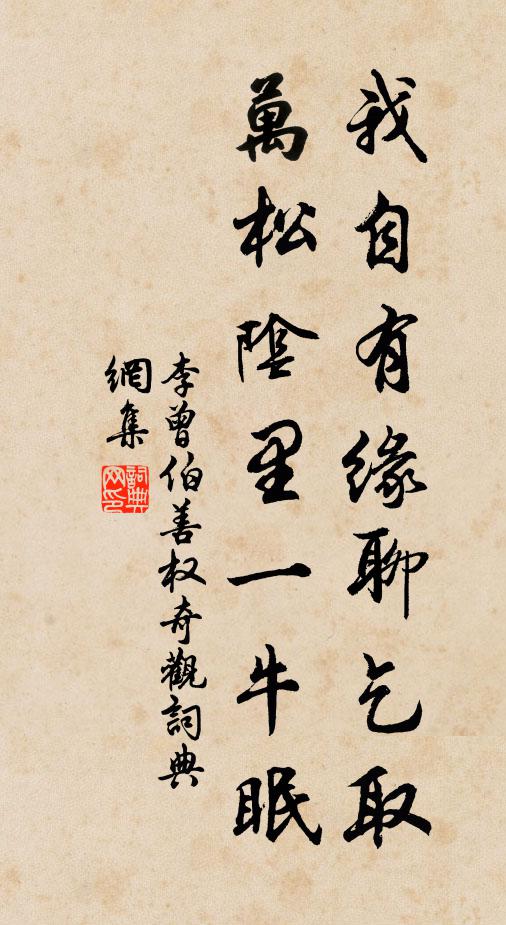 我自有緣聊乞取
萬松陰里一牛眠
李曾伯善权奇觀詞典
網集
詞典网印